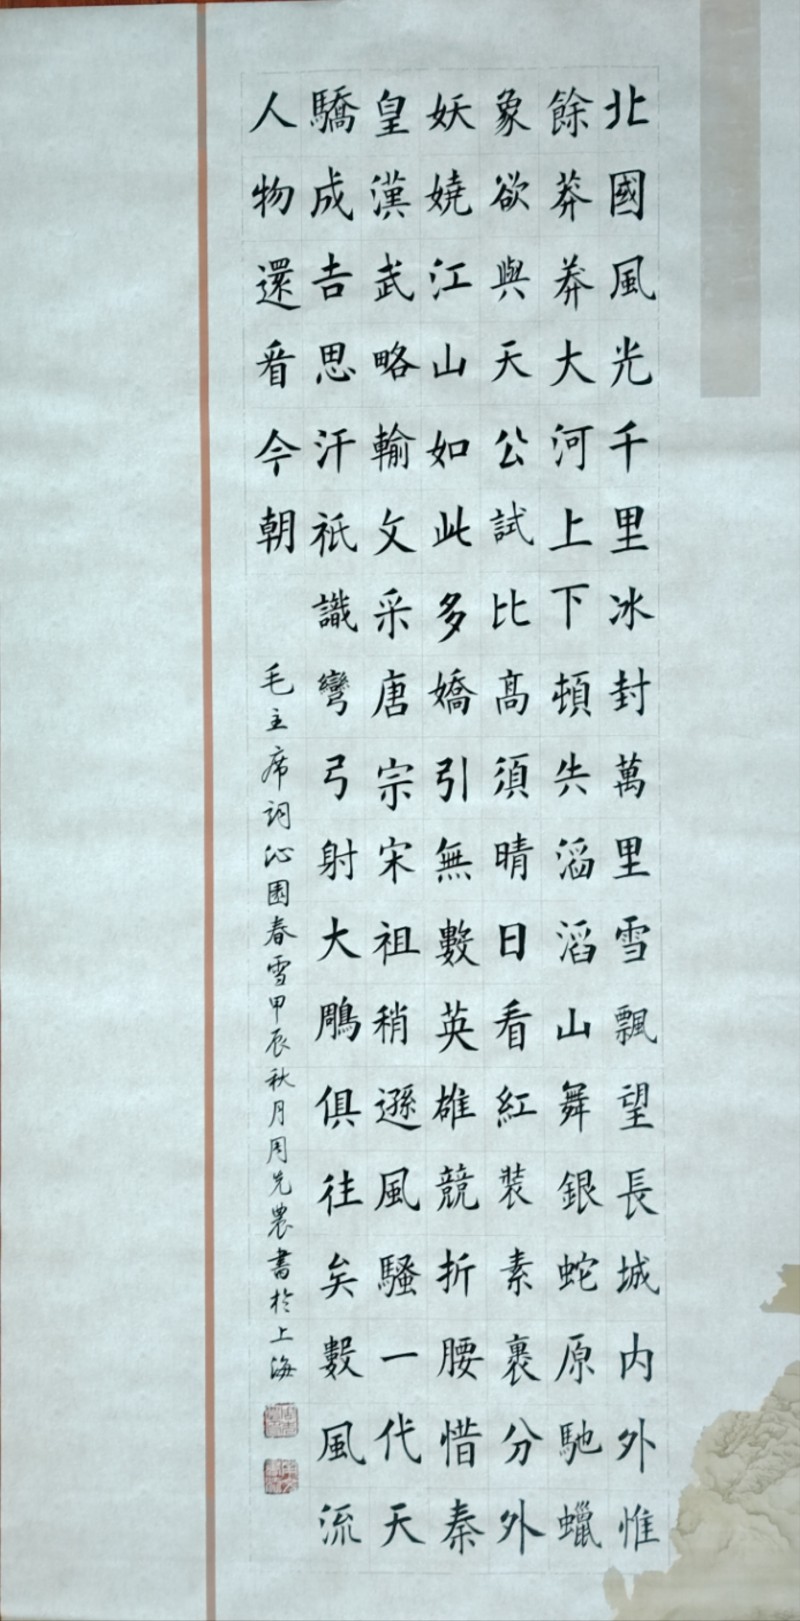 北國風光千里冰封萬里雪飄望長城内外惟
餘莽莽大河上下頓失滔滔山舞銀蛇原馳蠟
象欲與天公試比髙須晴日看紅裝素裹分外
妖嬈江山如此多嬌引無數英雄競折腰惜秦
皇漢武略輸文采唐宗宋祖稍遜風騷一代天
驕成吉思汗祇識彎弓射大鵰俱往矣數風流
人物還看今朝
毛主席詞沁園春雪甲辰秋月周先農書於上海